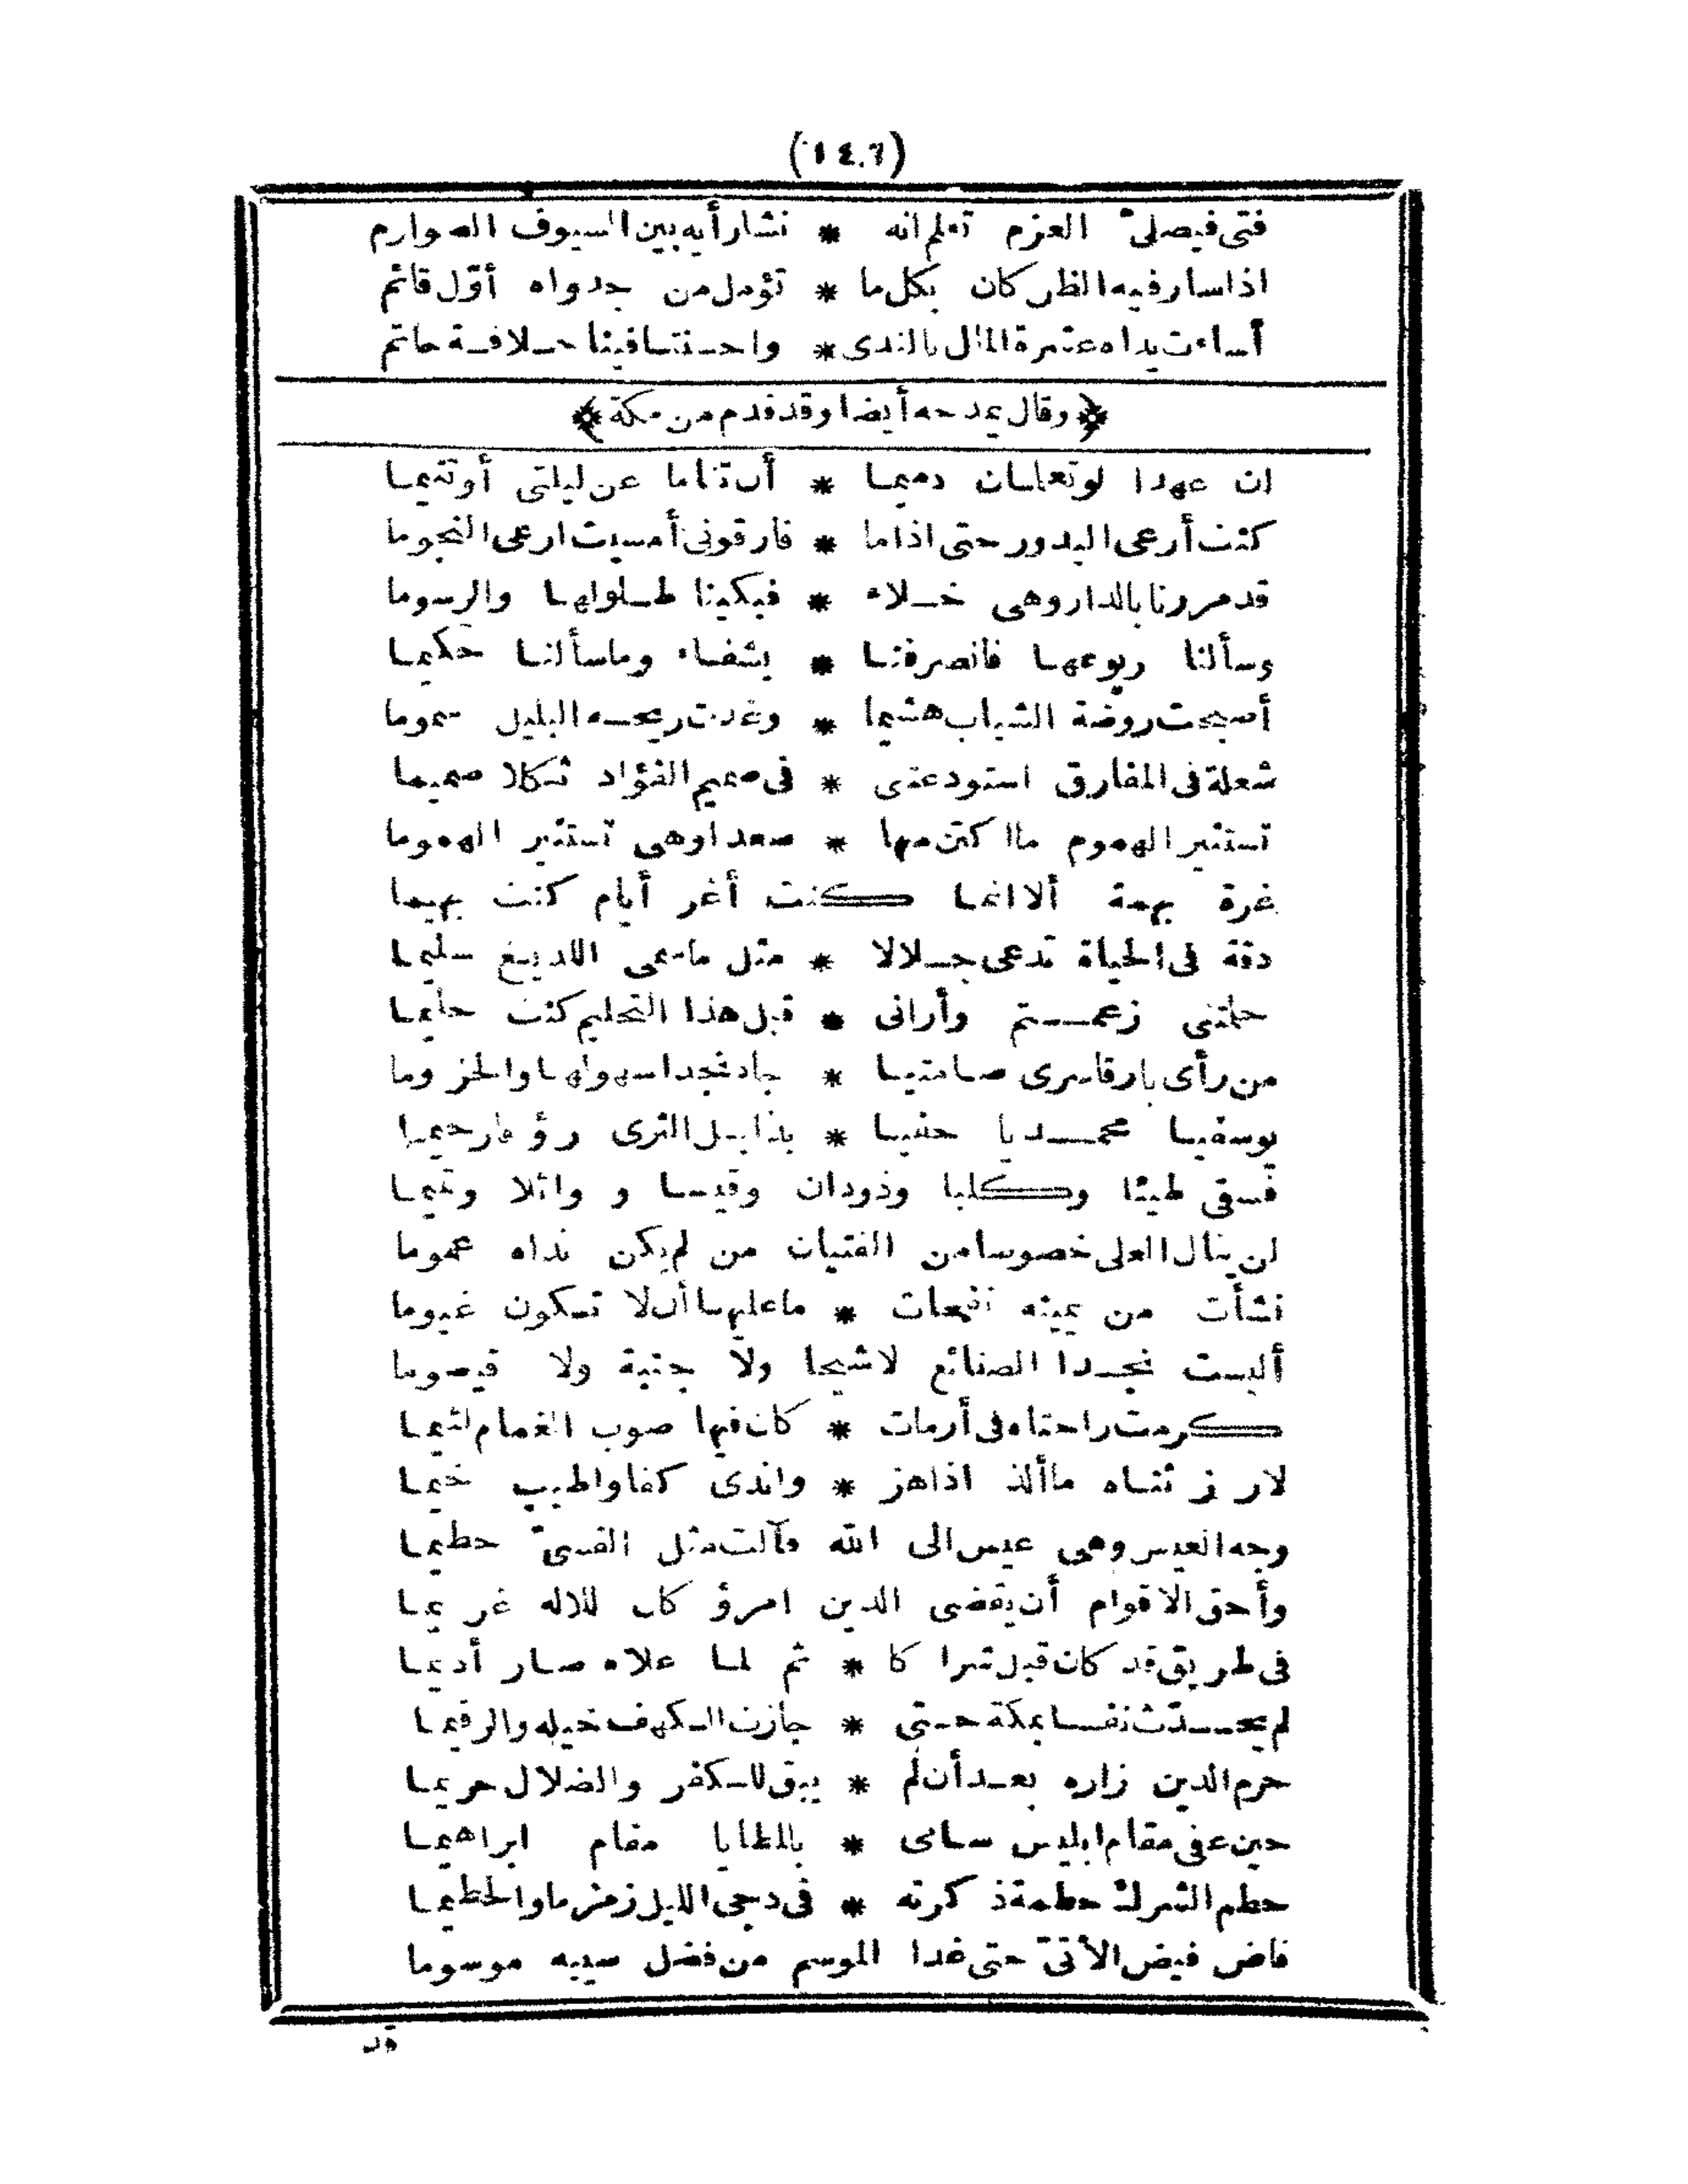 (١٤٦)
فتى فيصلىّ العزم تعلم انه * نشا رأيه بين السيوف الصوارم
اذا سار فيه الظن كان بكل ما * تؤمل من جدواه أوّل قائم
أساءت يداه عشرة المال بالندى * واحسنتا فينا خلافة حاتم
﴿وقال يمدحه أيضا وقد قدم من مكة﴾
ان عهدا لو تعلمان ذميما * أن تناما عن ليلتى أو تنيما
كنت أرعى البدور حتى اذا ما * فارقونى أمسيت ارعى النجوما
قد مررنا بالدار وهى خلاء * فبكينا طلولها والرسوما
وسألنا ربوعها فانصرفنا * بشفاء وما سألنا حكيما
أصبحت روضة الشباب هشيما * وغدت ريحه البليل سموما
شعلة فى المفارق استودعتنى * فى صميم الفؤاد ثكلا صميما
تستثير الهموم ما اكتن منها * صعدا وهى تستثير الهموما
غرة بهمة ألا انما كنت أغر أيام كنت بهيما
دقة فى الحياة تدعى جلالا * مثل ما سمى اللديغ سليما
حلمتنى زعمتم وأرانى * قبل هذا التحليم كنت حليما
من رأى بارقا سرى صامتيا * جاد نجدا سهولها والحزوما
يوسفيا محمديا حفيا * بذليل الثرى رؤفا رحيما
فسقى طيئا وكلبا ودودان وقيسا و وائلا وتميما
لن ينال العلى خصوصا من الفتيان من لم يكن نداه عموما
نشأت من يمينه نفحات * ما عليها أن لا تكون غيوما
ألبست نجدا الصنائع لا شيحا ولا جنبة ولا قيصوما
كرمت راحتاه فى أزمات * كان فيها صوب الغمام لئيما
لا رزئناه ما ألذ اذا هز * واندى كفا واطيب خيما
وجه العيس وهى عيس الى الله فآلت مثل القسىّ حطيما
وأحق الاقوام أن يقضى الدين امرؤ كان للاله غريما
فى طريق قد كان قبل شراكا * ثم لما علاه صار أديما
لم يحدّث نفسا بمكة حتى * جازت الكهف خيله والرقيما
حرم الدين زاره بعد أن لم * يبق للكفر والضلال حريما
حين عفى مقام ابليس سامى * بالمطايا مقام ابراهيما
حطم الشرك حطمة ذكرته * فى دجى الليل زمزما والحطيما
فاض فيض الأتىّ حتى غدا الموسم من فضل سيبه موسوما
قد